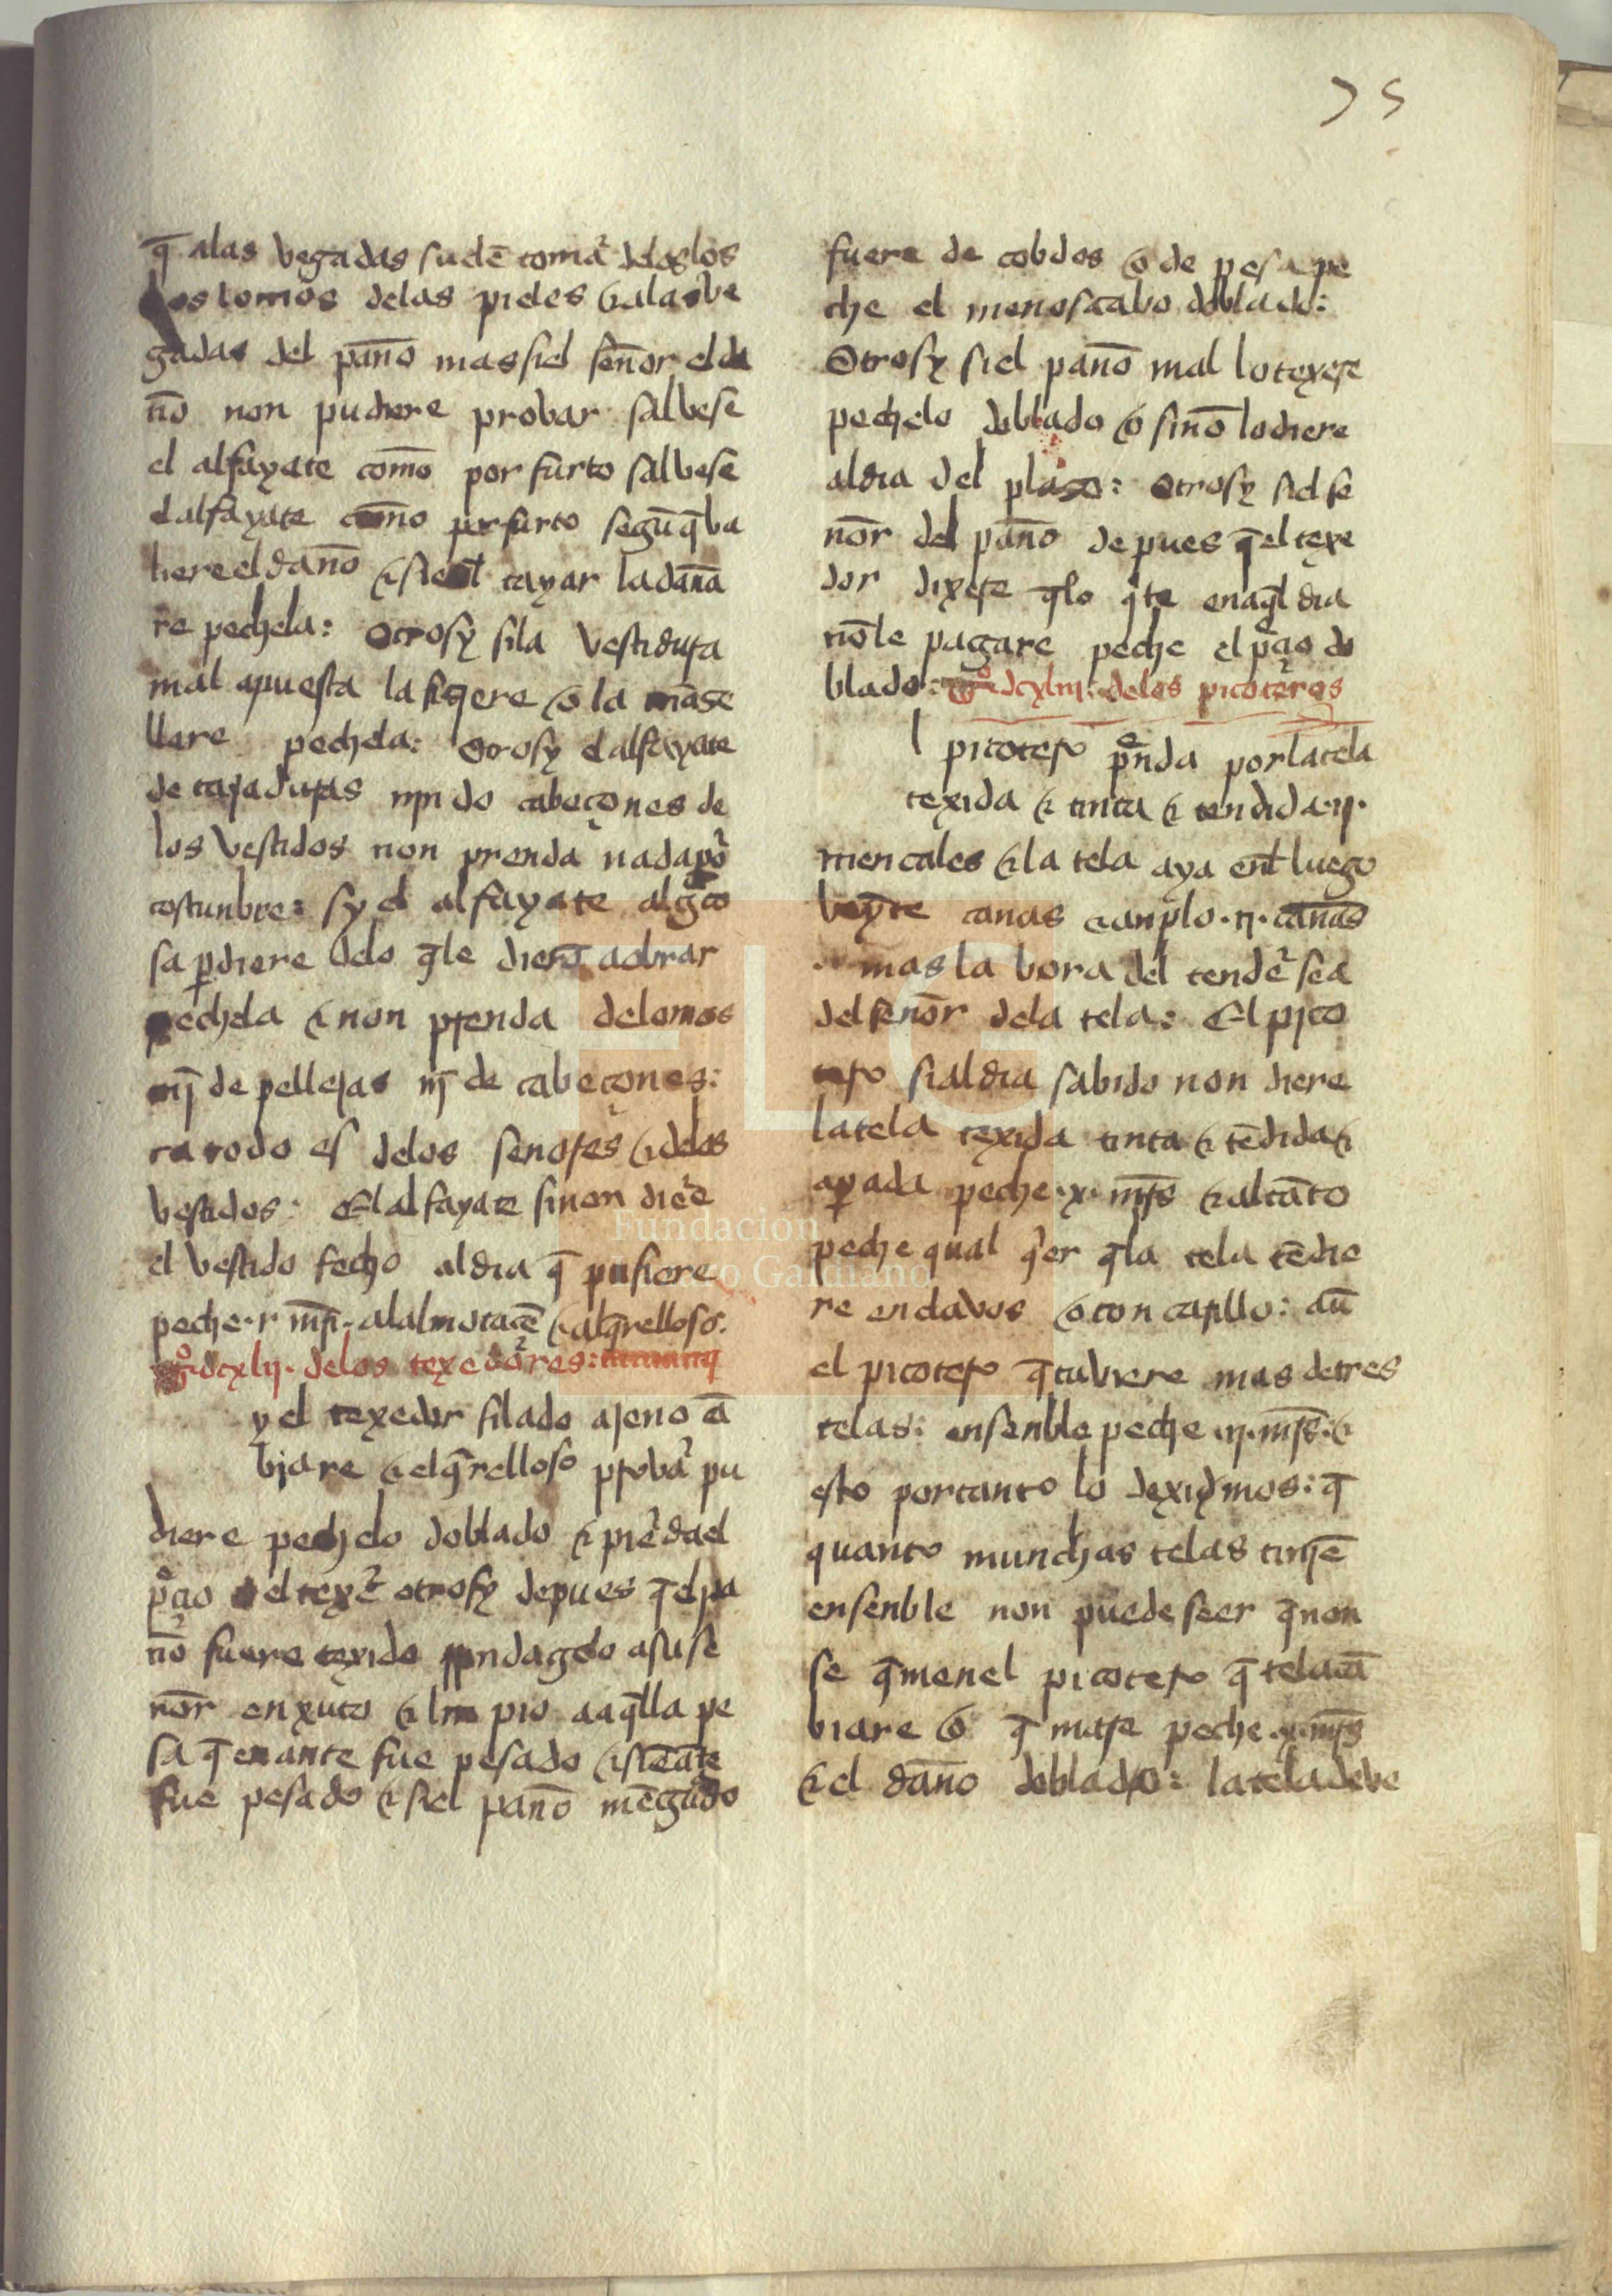 75
q̄ alas vegadas suelē tomar̉ delos los
los lomos delas pieles ⁊ alas ve
gadas del pan̄o mas si el sen̄or el da
n̄o non pudiere probar salbese
el alfayate com̄o por furto salbese
el alfayate com̄o por furto segū q̄ ba
liere el dan̄o ⁊ si en el tayar la dan̄a
re pechela: otrosy si la vestidura
mal apuesta la fiȝiere o la manse
llare pechela: otrosy el alfayate
de tajaduras njn de cabeçones de
los vestidos non prenda nada por̉
costunbre: sy el alfayate alḡa co
sa ꝑdiere delo q̄ le dierō a obrar
pechela ⁊ non prenda de lomos
nj̄ de pellejas nj̄ de cabeçones:
ca todo es delos senores ⁊ delos
vestidos: El alfayate si non diere
el vestido fecho al dia q̄ pusiere
peche .x. mr̄s. al almotacē ⁊ al q̄relloso.
tº. dcxlij. delos texedores:
y el texedor filado ajeno cā
bjare ⁊ el q̄relloso probar̉ pu
diere pechelo doblado ⁊ pierda el
p̄çio del texer̉ otrosy depues q̄ el pa
n̄o fuere texido rrindagelo a su se
nōr enxuto ⁊ linpio a aq̄lla pe
sa q̄ enante fue pesado ⁊ si enāte
fue pesado ⁊ si el pan̄o mēguado
fuere de cobdos o de pesa pe
che el menoscabo doblado:
Otrosy si el pan̄o mal lo texere
pechelo doblado o si nō lo diere
al dia del plaso: otrosy si el se
nōr del pan̄o depues q̄ el texe
dor dixere q̄ lo q̉te en aq̄l dia
nō le pagare peche el p̄çio do
blado: tº. dcxliij: delos picoteros
l picotero p̄nda por la tela
texida ⁊ tinta ⁊ tendida .ij.
mencales ⁊ la tela aya enl luego
veȳte canas ⁊ anplo .ij. canas
mas la bora del tender̉ sea
del senōr dela tela: El pico
tero si al dia sabido non diere
la tela texida tinta ⁊ tēdida ⁊
aꝑada peche .x. mr̄s ⁊ al tāto
peche qual q̉er q̄ la tela tēdie
re en clavos o con capillo: aū
el picotero q̄ tubiere mas de tres
telas: ensenble peche .ij. mr̄s. ⁊
esto por tanto lo deximos: q̄
quanto munchas telas tinjē
ensenble non puede seer q̄ non
se q̄men el picotero q̄ tela cā
biare o q̄mare peche .x. mr̄s
⁊ el dan̄o doblado: la tela debe
FLG
Fundación
Lázaro Galdiano